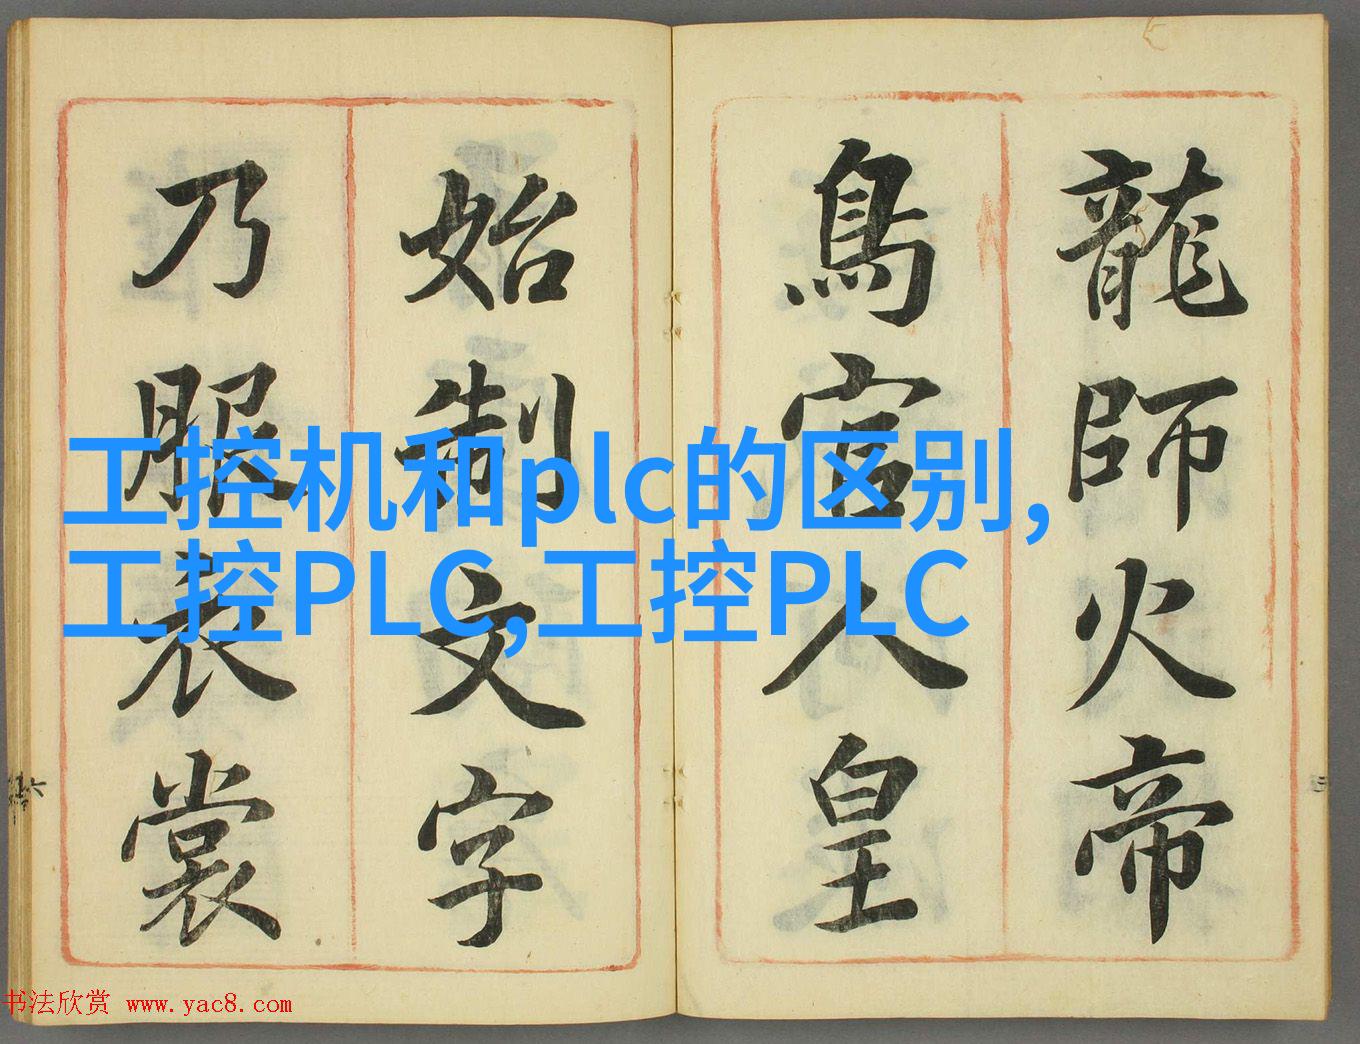 龍師火帝
鳥官人皇
始制文字
乃服衣裳
工控机和plc的区别,
工控PLC,工控PLC
书法欣赏 www.yac8.com